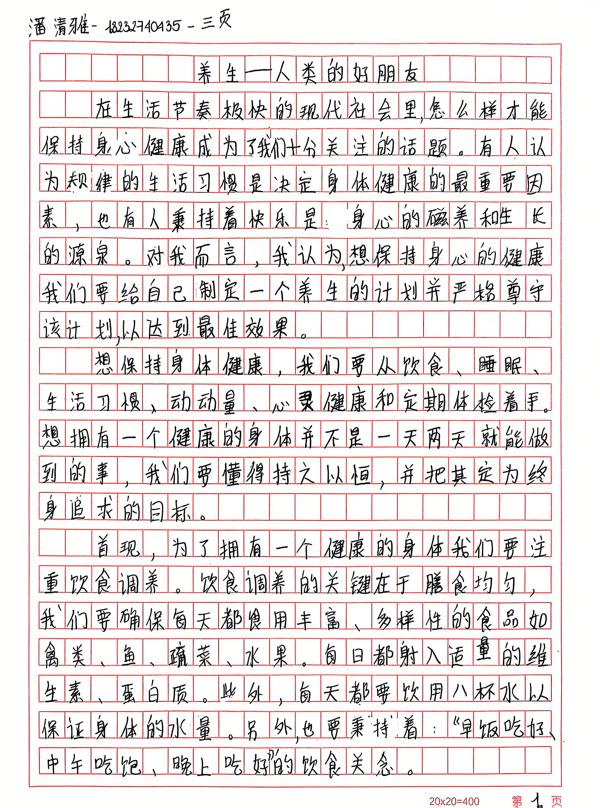 潘清雅-18232740435-三页
养生——人类的好朋友
在生活节奏极快的现代社会里,怎么样才能
保持身心健康成为了我们十分关注的话题。有人认
为规律的生活习惯是决定身体健康的最重要因
素,也有人秉持着快乐是身心的磁养和生长
的源泉。对我而言,我认为,想保持身心的健康
我们要给自己制定一个养生的计划并严格尊守
该计划,以达到最佳效果。
想保持身体健康,我们要从饮食、睡眠、
生活习惯、动动量、心灵健康和定期体检着手。
想拥有一个健康的身体并不是一天两天就能做
到的事,我们要懂得持之以恒,并把其定为终
身追求的目标。
首现,为了拥有一个健康的身体我们要注
重饮食调养。饮食调养的关键在于膳食均匀,
我们要确保每天都食用丰富、多样性的食品如
禽类、鱼、蔬菜、水果。每日都射入适量的维
生素、蛋白质。此外,每天都要饮用八杯水以
保证身体的水量。另外,也要秉持着:“早饭吃好、
中午吃饱、晚上吃好”的饮食关念。
20x20=400 第 1 页